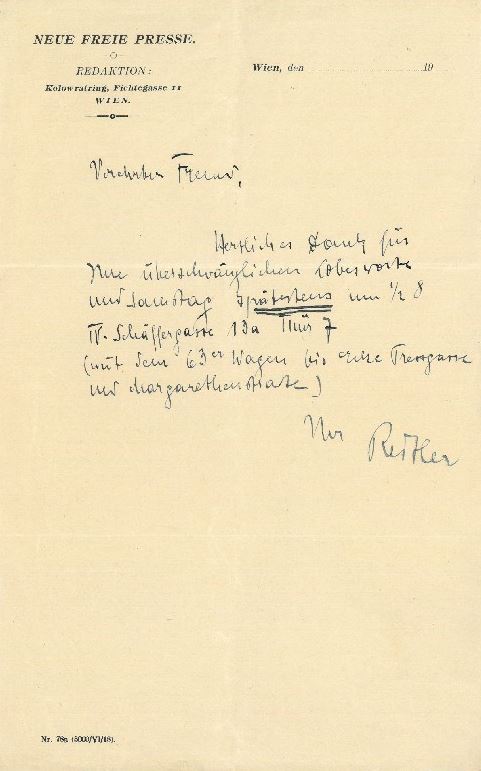 NEUE FREIE PRESSE.
REDAKTION:
Kolowratring, Fichtegasse 11
WIEN.
Wien, den 19
Verehrter Freund,
Herzlichen Dank für
Ihre überschwänglichen Lobesworte
und Samstag spätestens um 1/2 8
IV. Schäffergasse 13a Thür 7
(mit dem 63er Wagen bis Ecke
und Margarethenstraße)
Ihr
Nr. 78a (5000/VI/18).